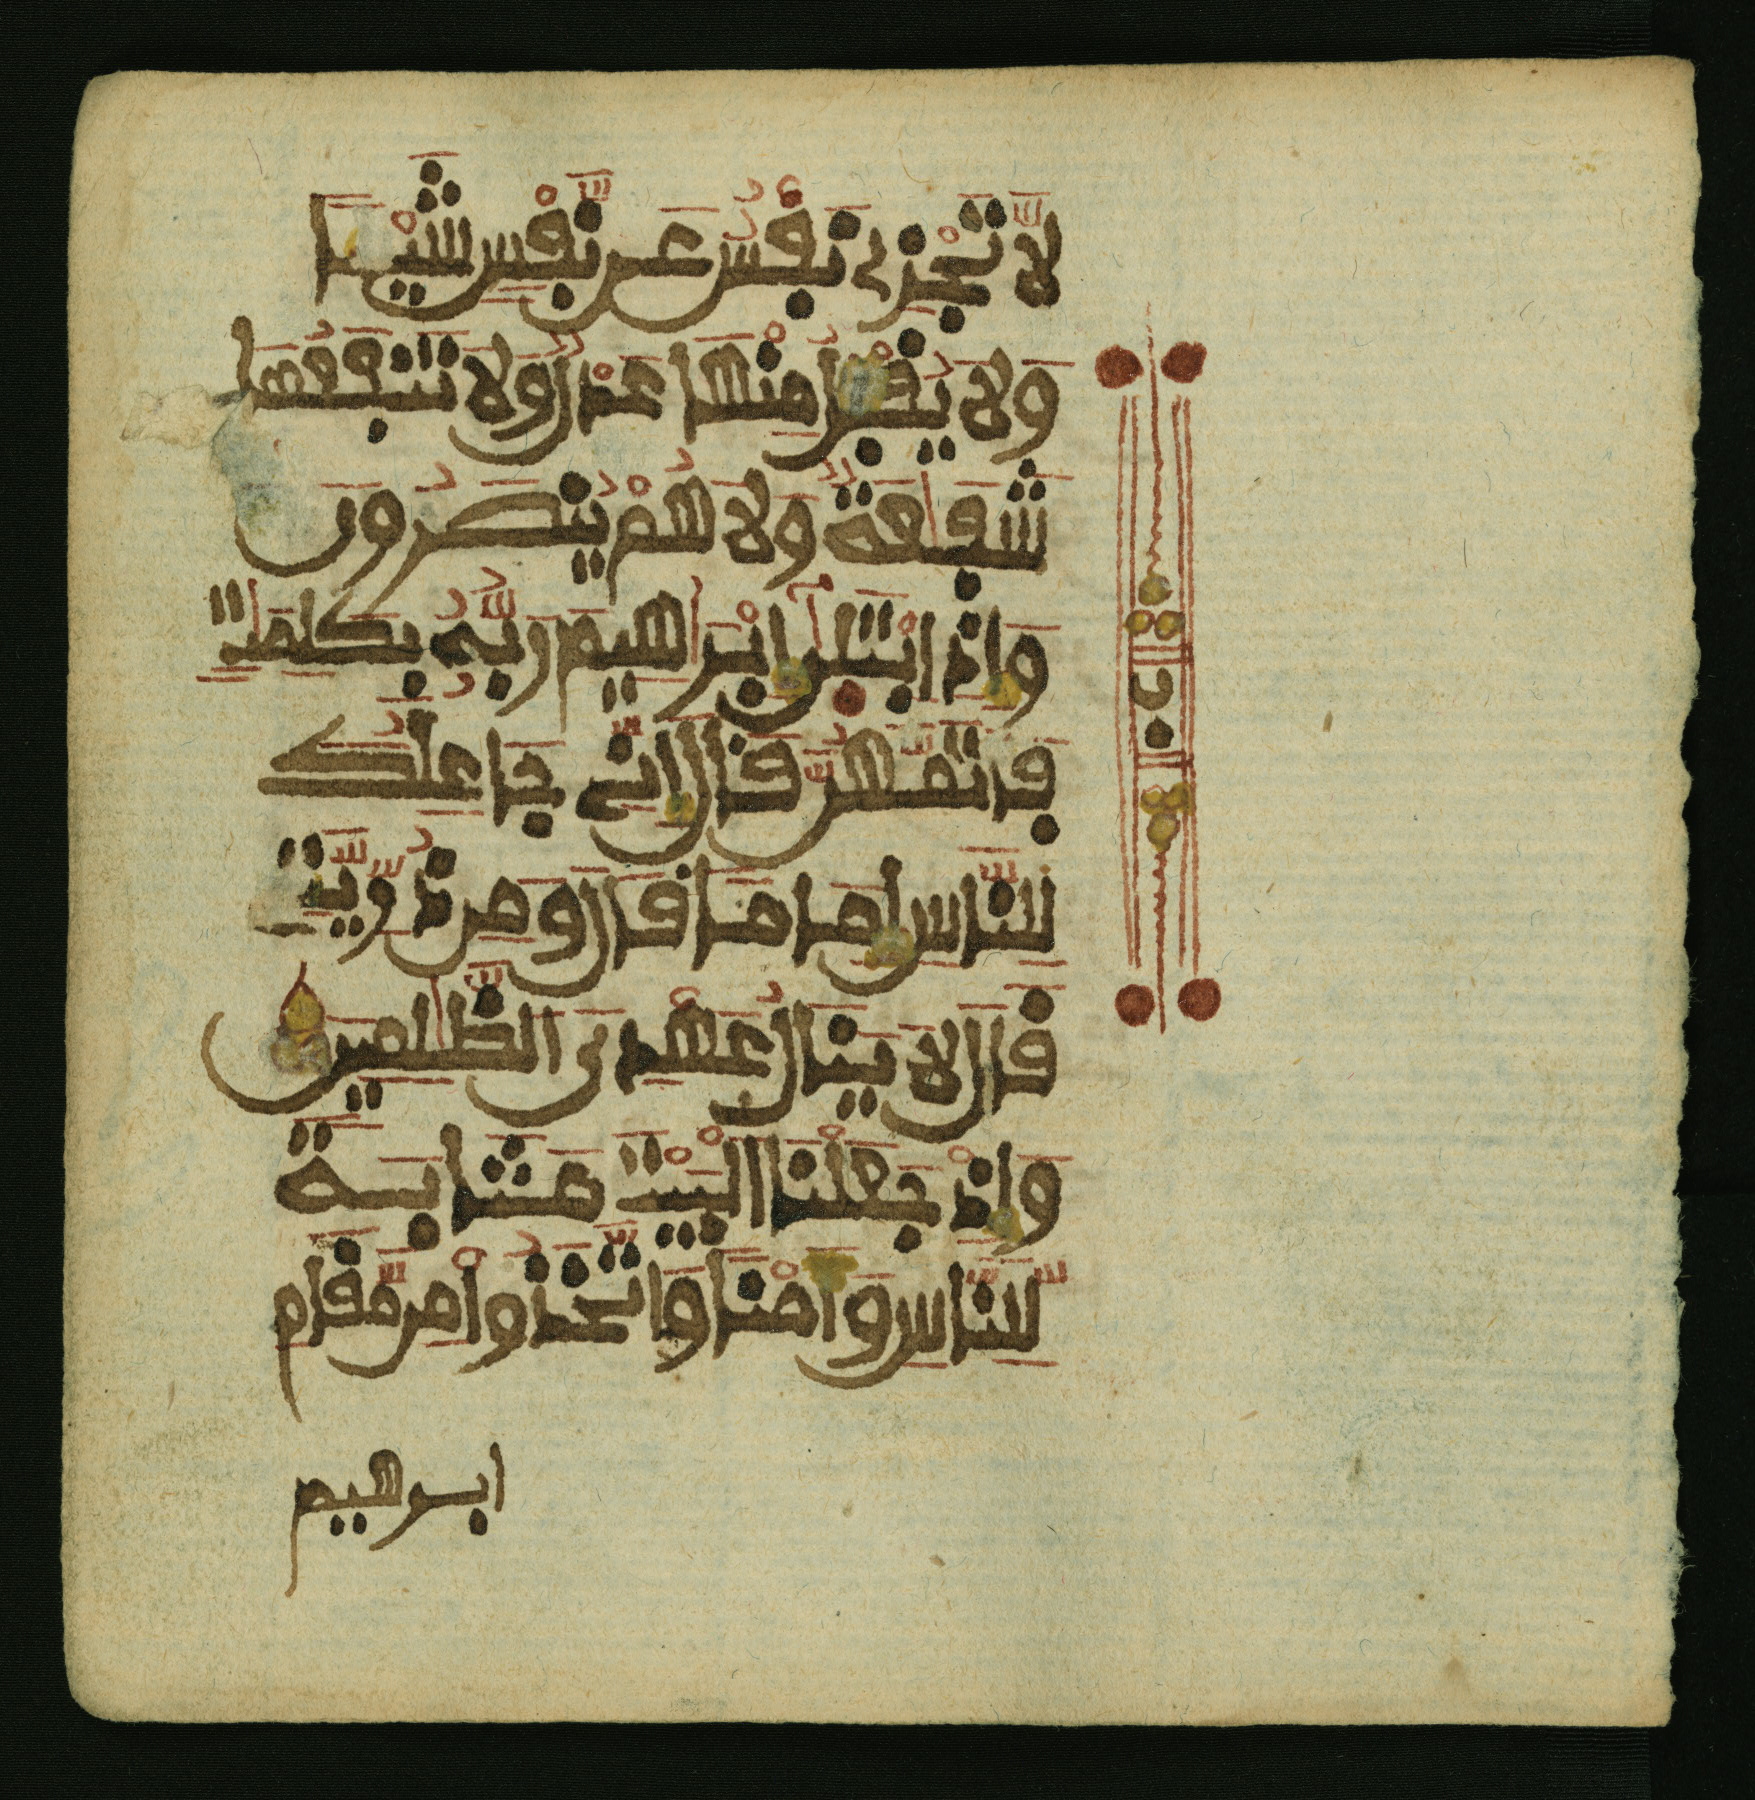 لَّا تَجْزِى نَفْسٌ عَن نَّفْسٍ شَيْـًٔا
وَلَا يُقْبَلُ مِنْهَا عَدْلٌ وَلَا تَنفَعُهَا
شَفَٰعَةٌ وَلَا هُمْ يُنصَرُونَ
وَإِذِ ابْتَلَىٰ إِبْرَٰهِيمَ رَبُّهُ بِكَلِمَٰتٍ
فَأَتَمَّهُنَّ قَالَ إِنِّى جَاعِلُكَ
لِلنَّاسِ إِمَامًا قَالَ وَمِن ذُرِّيَّتِى
قَالَ لَا يَنَالُ عَهْدِى الظَّٰلِمِينَ
وَإِذْ جَعَلْنَا الْبَيْتَ مَثَابَةً
لِّلنَّاسِ وَأَمْنًا وَاتَّخَذُوا مِن مَّقَامِ
ابرهيم